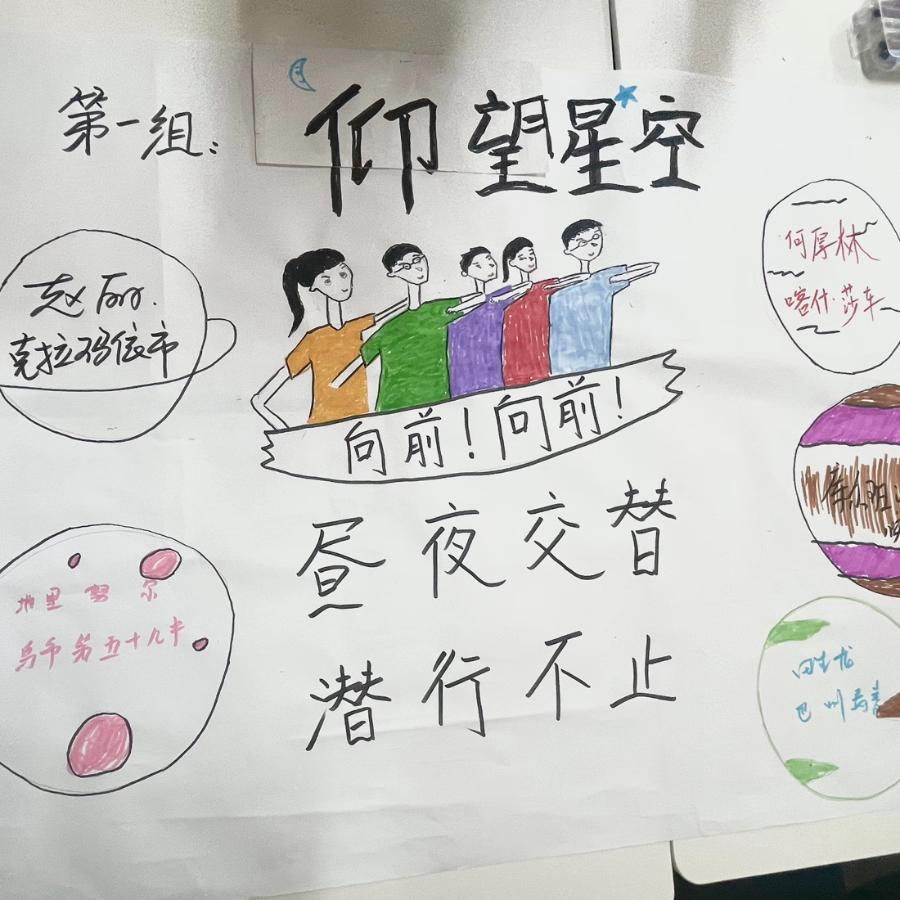 第一组：
仰望星空
赵丽.
克拉玛依市
何厚林
喀什·莎车
向前！向前！
昼夜交替
地里努尔
乌市第五十九中
潜行不止